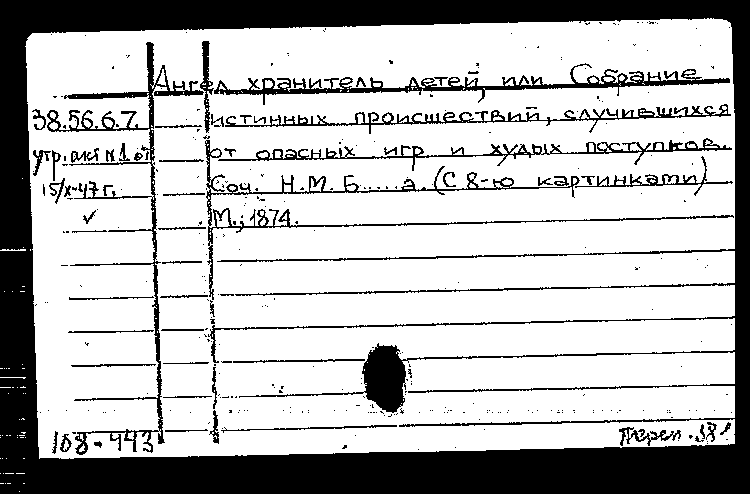 Ангел хранитель детей, или Собрание
38.56.6.7. истинных происшествий, случившихся
утр. акт № 1 от от опасных игр и худых поступков.
15/X-47 г. Соч. Н.М. Б.....а. (С 8-ю картинками)
✓ М., 1874.
108-443 Переп.